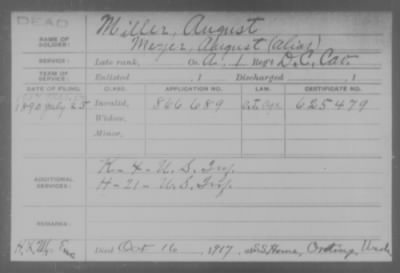 DEAD
NAME OF SOLDIER:
Miller, August
Meyer, August (alias)
SERVICE: Late rank, Co. A., 1 Reg't D.C. Cav.
TERM OF SERVICE: Enlisted , 1 Discharged , 1
DATE OF FILING. CLASS. APPLICATION NO. LAW. CERTIFICATE NO.
1890 July 25 Invalid, 866 689 625479
Widow,
Minor,
ADDITIONAL SERVICES:
K-4-U.S. Inf.
H-21-U.S. Inf.
REMARKS:
Died Oct 16, 1917, at S.S. Home, Orting, Wash